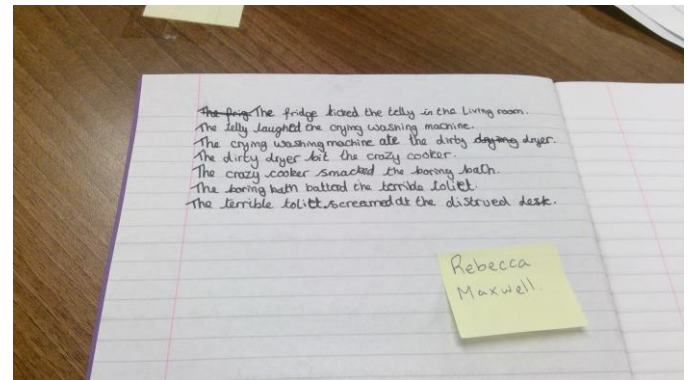 The frig The fridge kicked the telly in the Living room.
The telly laughed the crying washing machine.
The crying washing machine ate the dirty drying dryer.
The dirty dryer bit the crazy cooker.
The crazy cooker smacked the boring bath.
The boring bath batted the terrible toliet.
The terrible toliet screamed at the distrued desk.
Rebecca
Maxwell.